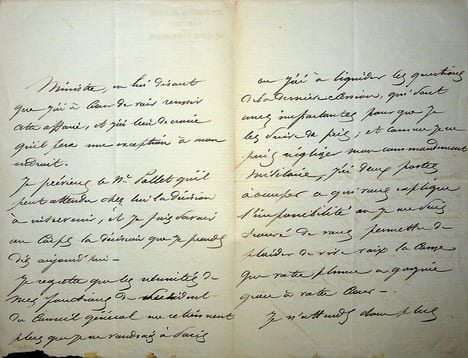 Ministre, en lui disant
que j'ai à cœur de voir réussir
cette affaire, et j'ai lieu de croire
qu'il fera une exception à mon
endroit.
Je préviens le Mr. Pallet qu'il
peut attendre chez lui la décision
à intervenir, et je fais savoir
au Corps la décision que je prends
dès aujourd'hui —
Je regrette que les nécessités de
mes fonctions de Président
du Conseil général me retiennent
plus que je ne voudrais à
où j'ai à liquider les questions
de la dernière session, qui sont
assez importantes pour que je
les suive de près; et comme je ne
puis négliger mon commandement
militaire, j'ai deux postes
à occuper ce qui vous explique
l'impossibilité où je me suis
trouvé de vous permettre de
plaider de vive voix la Cause
que votre plume a gagnée
grâce à votre Cœur —
Je n'attends donc plus